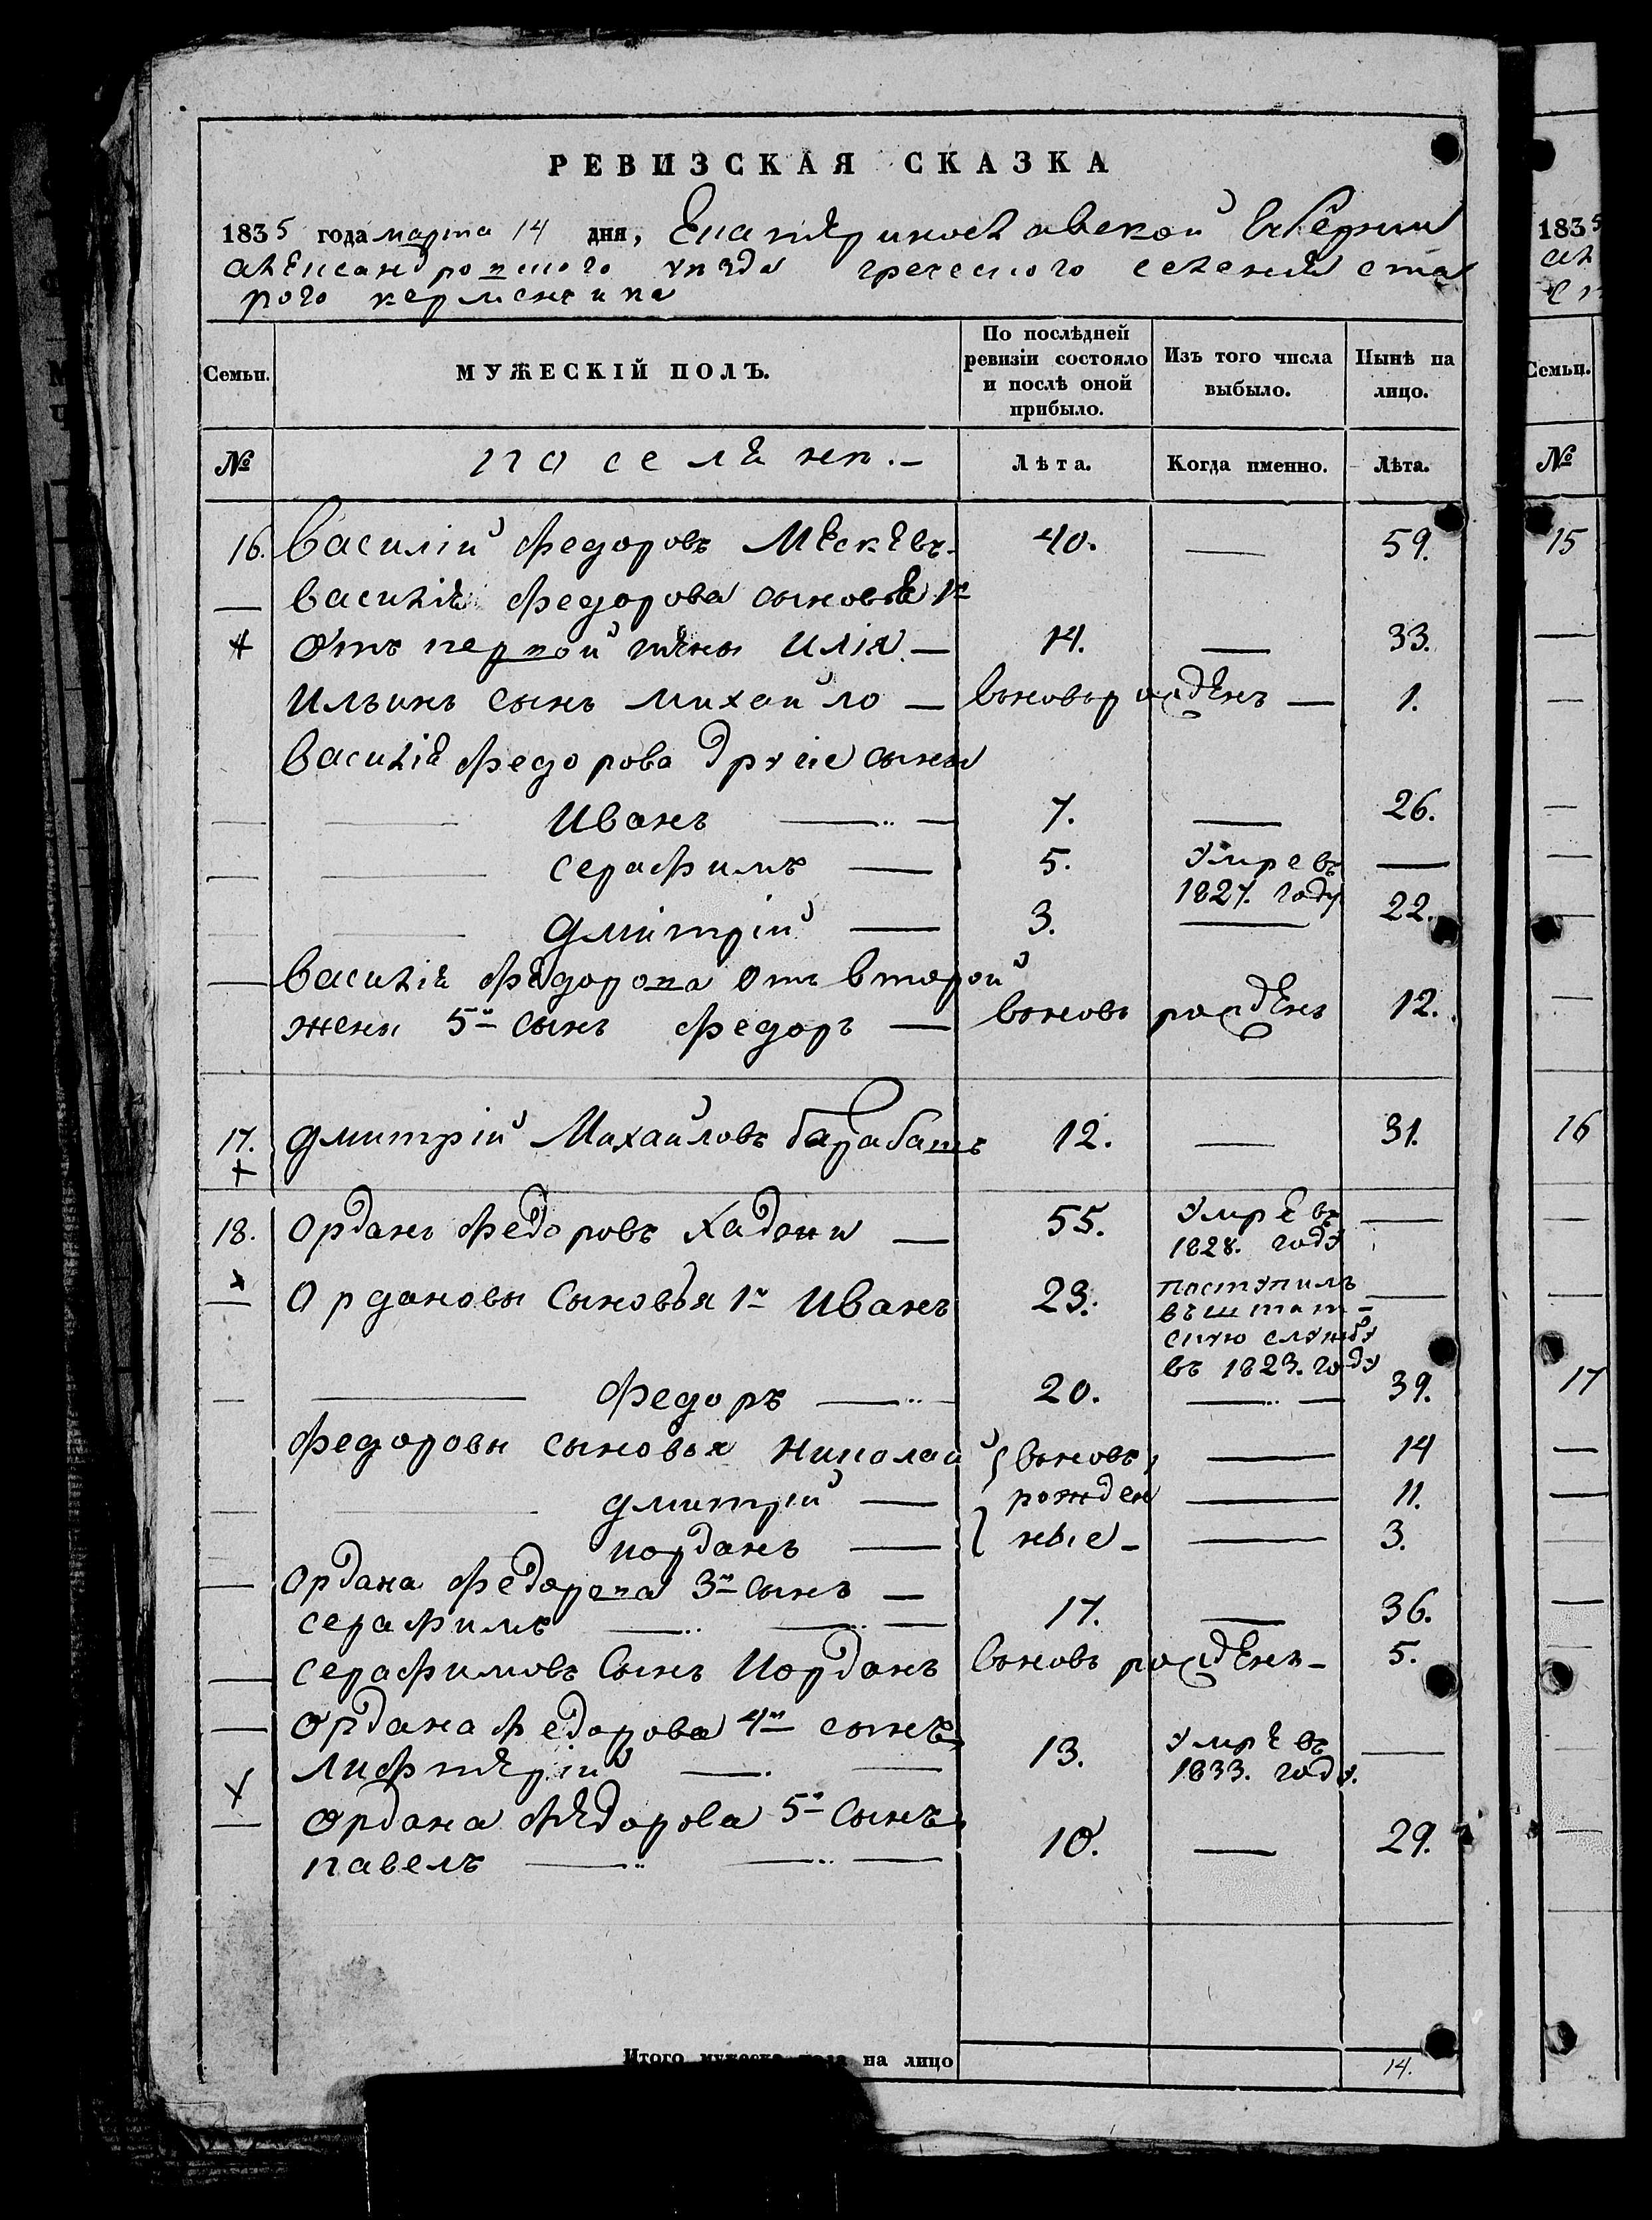 РЕВИЗСКАЯ СКАЗКА
1835 года марта 14 дня, Екатеринославской Губернии
александровского уезда греческого селения ста
рого керменчика
Семьи. МУЖЕСКІЙ ПОЛЪ. По послѣдней ревизіи состояло и послѣ оной прибыло. Изъ того числа выбыло. Нынѣ на лицо.
№ поселян.— Лѣта. Когда именно. Лѣта.
16. Василій федоровъ 40. — 59.
— Василія федорова сыновья 1й
отъ первой жены Илія — 14. — 33.
Ильинъ сынъ михайло — вновь рожденъ — 1.
Василія федорова другие сыны
Иванъ — 7. — 26.
серафимъ — 5. умре въ 1827. году —
дмитрій — 3. — 22.
— Василія федорова отъ второй
жены 5й сынъ федоръ — вновь рожденъ 12.
17. дмитрій Михайловъ барабашъ 12. — 31.
18. Орданъ федоровъ — 55. умре въ 1828. году —
Ордановы сыновья 1й Иванъ 23. поступилъ въ штат-
скую службу
въ 1823. году —
федоръ — 20. — 39.
федоровы сыновья николай вновь — 14
дмитрій — рожден — 11.
иорданъ — ные — 3.
— Ордана федорова 3й сынъ —
серафимъ — 17. — 36.
— серафимовъ сынъ Иорданъ вновь рожденъ — 5.
— Ордана федорова 4й сынъ
лифтерій — 13. умре въ 1833. году. —
— Ордана федорова 5й сынъ
павелъ — 10. — 29.
Итого мужеска пола на лицо 14.
1835
Семьи.
№
15
16
17